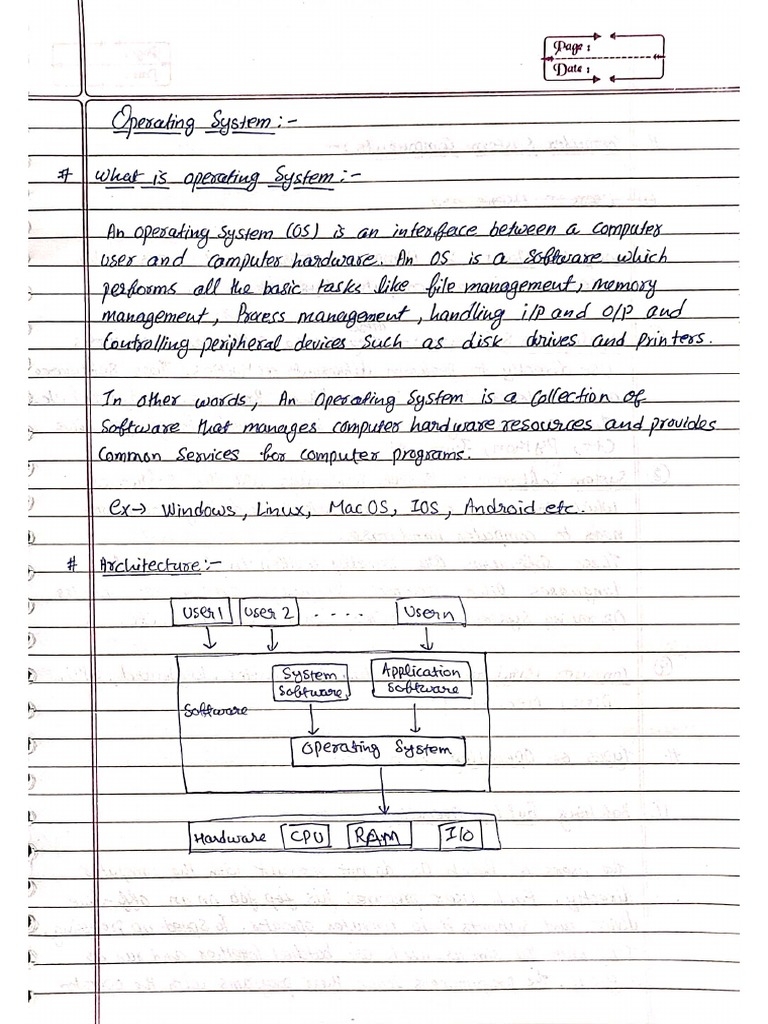 Page :
Date :
Operating System :-
# What is operating System :-
An operating System (OS) is an interface between a computer
user and computer hardware. An OS is a Software which
performs all the basic tasks like file management, memory
management, Process management, handling i/p and o/p and
Controlling peripheral devices such as disk drives and printers.
In other words, An Operating System is a Collection of
Software that manages computer hardware resources and provides
Common Services for computer programs.
ex→ Windows, Linux, Mac OS, IOS, Android etc.
# Architecture :-
User 1 User 2 .... User n
System Application
Software Software
Software
Operating System
Hardware CPU RAM I/O